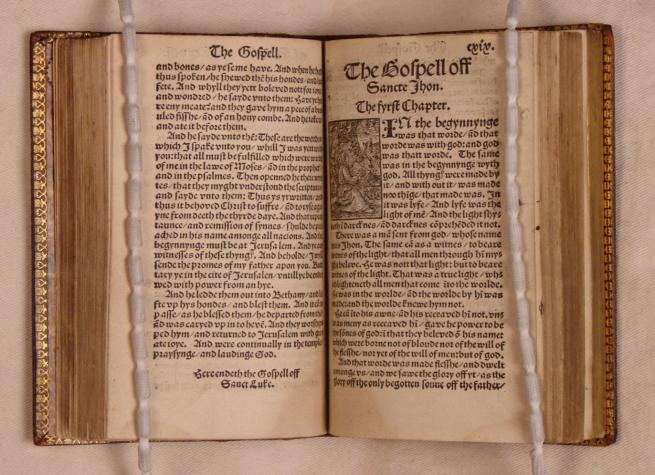 The Gospell.
and bones/ as ye se me have. And when he had
thus spoken/ he shewed thē his hondes/ and his
fete. And whyll they yett beleved not for ioye
and wondred/ he sayde vnto them: Have ye he-
re eny meate? and they gave hym a pece of a broy-
uled fisshe/ ād of an hony combe. And he toke it
and ate it before them.
And he sayde vnto thē: These are the wordes
which I spake vnto you/ whill I was yet with
you: that all must be fulfilled which were written
of me in the lawe of Moses/ ād in the prophetes
and in the psalmes. Then openned he their wyt-
tes/ that they myght vnderstond the scriptures
and sayde vnto them: Thus ys yt written/ and
thus it behoved Christ to suffre/ ād to ryse aga-
yne from deeth the thyrde daye. And that repen-
taunce/ and remission of synnes/ shulde be pre-
ached in his name amonge all nacions. And the
begynnynge must be at Jerusalem. And ye are
witnesses of these thyngs. And beholde/ I wyll
sende the promes of my father apon you. But
tary ye in the cite of Jerusalen/ vntill ye be endu-
wed with power from an hye.
And he ledde them out into Bethany/ and li-
fte vp hys hondes/ and blest them. And it cam to
passe/ as he blessed them/ he departed from them/
ād was caryed vp in to hevē. And they worship-
ped hym/ and returned to Jerusalem with gre-
ate ioye. And were continually in the temple/
praysynge/ and laudinge God.
Here endeth the Gospell off
Sanct Luke.
cxix.
The Gospell off
Sancte Jhon.
The fyrst Chapter.
IN the begynnynge
was that worde/ ād that
worde was with god: and god
was that worde. The same
was in the begynnynge wyth
god. All thyngs were made by
it/ and with out it/ was made
noo thige/ that made was. In
it was lyfe/ And lyfe was the
light of mē/ And the light shyneth
i darcknes/ ād darcknes cōprehēded it not.
There was a mā sent from god/ whose name
was Jhon. The same cā as a witnes/ to beare
witnes of the light/ that all men through hī mygh
t beleve. He was nott that light: but to beare
witnes of the light. That was a true light/ whi
lighteneth all men that come īto the worlde.
He was in the worlde/ ād the worlde by hī was
made: and the worlde knewe hym not.
He cā ito his awne/ ād his receaved hī not. vnto
as meny as receaved hī/ gave he power to be
the sōnes of god: ī that they beleved ō his name:
which were borne not of bloude nor of the will of
the flesshe/ nor yet of the will of men: but of god.
And that worde was made flesshe/ and dwelt
amonge vs/ and we sawe the glory off yt/ as the
glory off the only begotten sonne off the father/